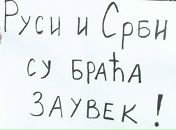 Руси и Срби
су браћа
заувек!